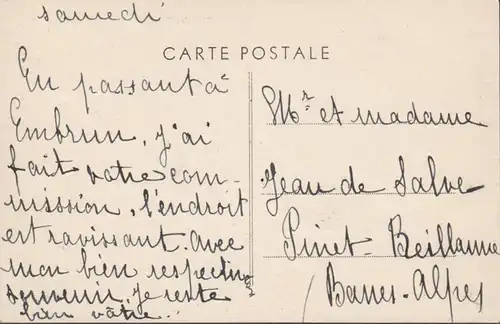 samedi
CARTE POSTALE
En passant à
Embrun, j'ai
fait votre com-
mission, l'endroit
est ravissant. Avec
mon bien respectueux
souvenir, je reste
bien vôtre.
Mr et madame
Jean de Salve
Pinet - Beillanne
Basses-Alpes